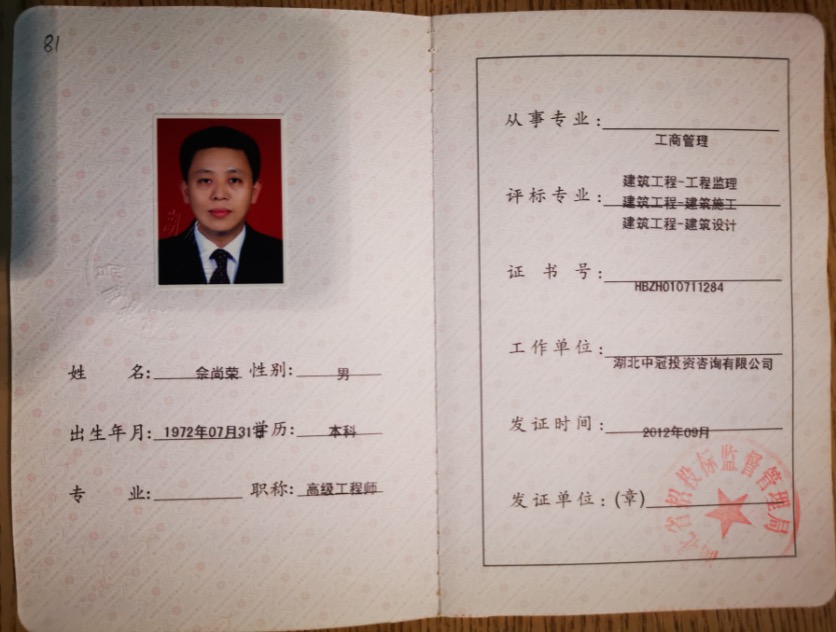 81
姓名: 佘尚荣 性别: 男
出生年月: 1972年07月31日 学历: 本科
专业: 职称: 高级工程师
从事专业:
工商管理
评标专业:
建筑工程-工程监理
建筑工程-建筑施工
建筑工程-建筑设计
证书号:
HBZH010711284
工作单位:
湖北中冠投资咨询有限公司
发证时间:
2012年09月
发证单位:(章)
湖北省招投标监督管理局